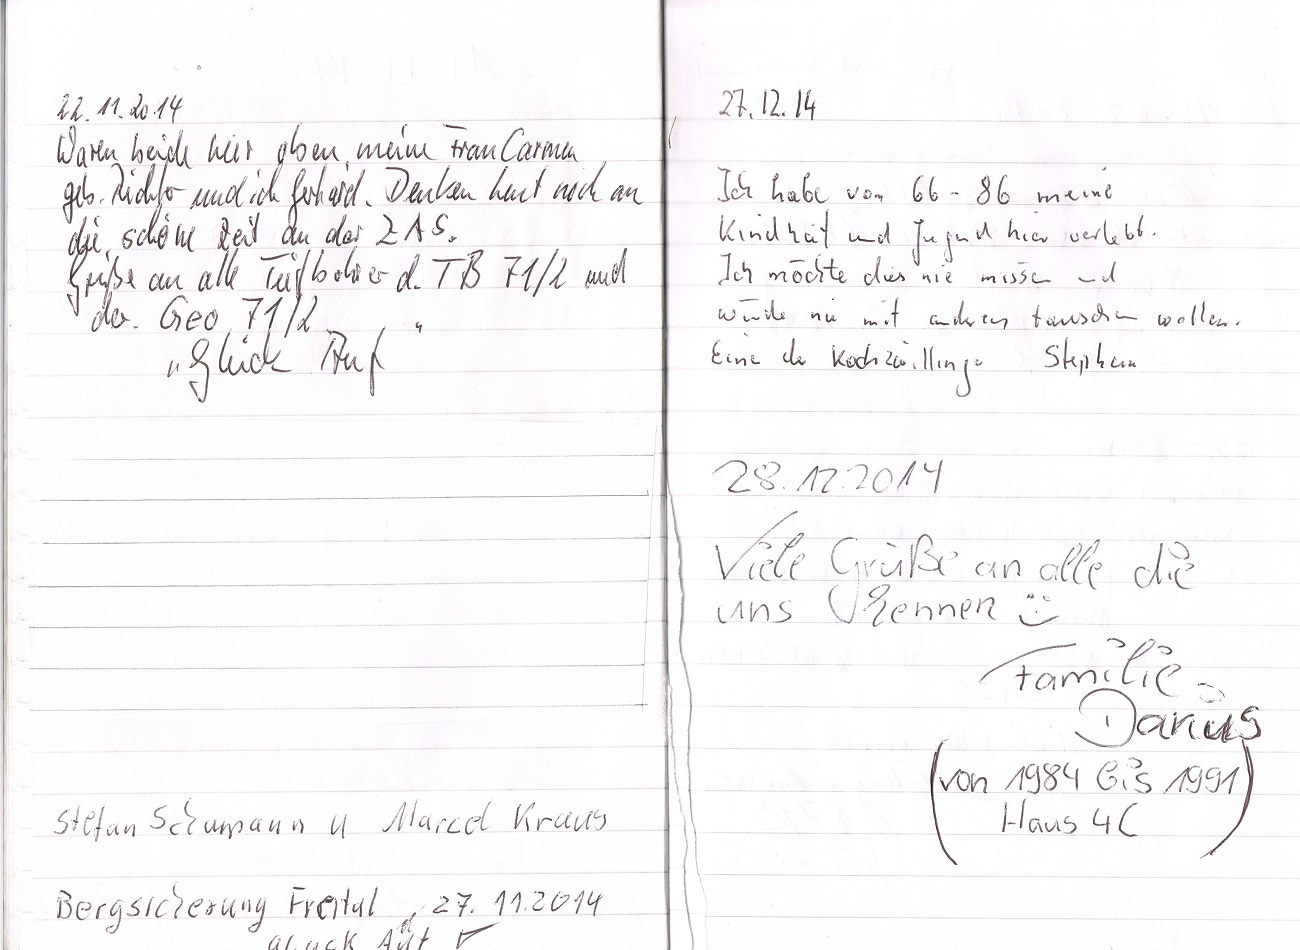 22.11.2014
Waren beide hier oben, meine Frau Carmen
geb. Richter und ich Gerhard. Denken heut noch an
die schöne Zeit an der ZAS.
Grüße an alle Tiefbohrer d. TB 71/2 und
der Geo 71/2
„Glück Auf“
Stefan Schumann u Marcel Kraus
Bergsicherung Freital, 27.11.2014
Glück Auf
27.12.14
Ich habe von 66 - 86 meine
Kindheit und Jugend hier verlebt.
Ich möchte dies nie missen und
würde nie mit anderen tauschen wollen.
Eine der Kochzwillinge Stephan
28.12.2014
Viele Grüße an alle die
uns kennen
Familie
Darius
(von 1984 bis 1991)
Haus 4C